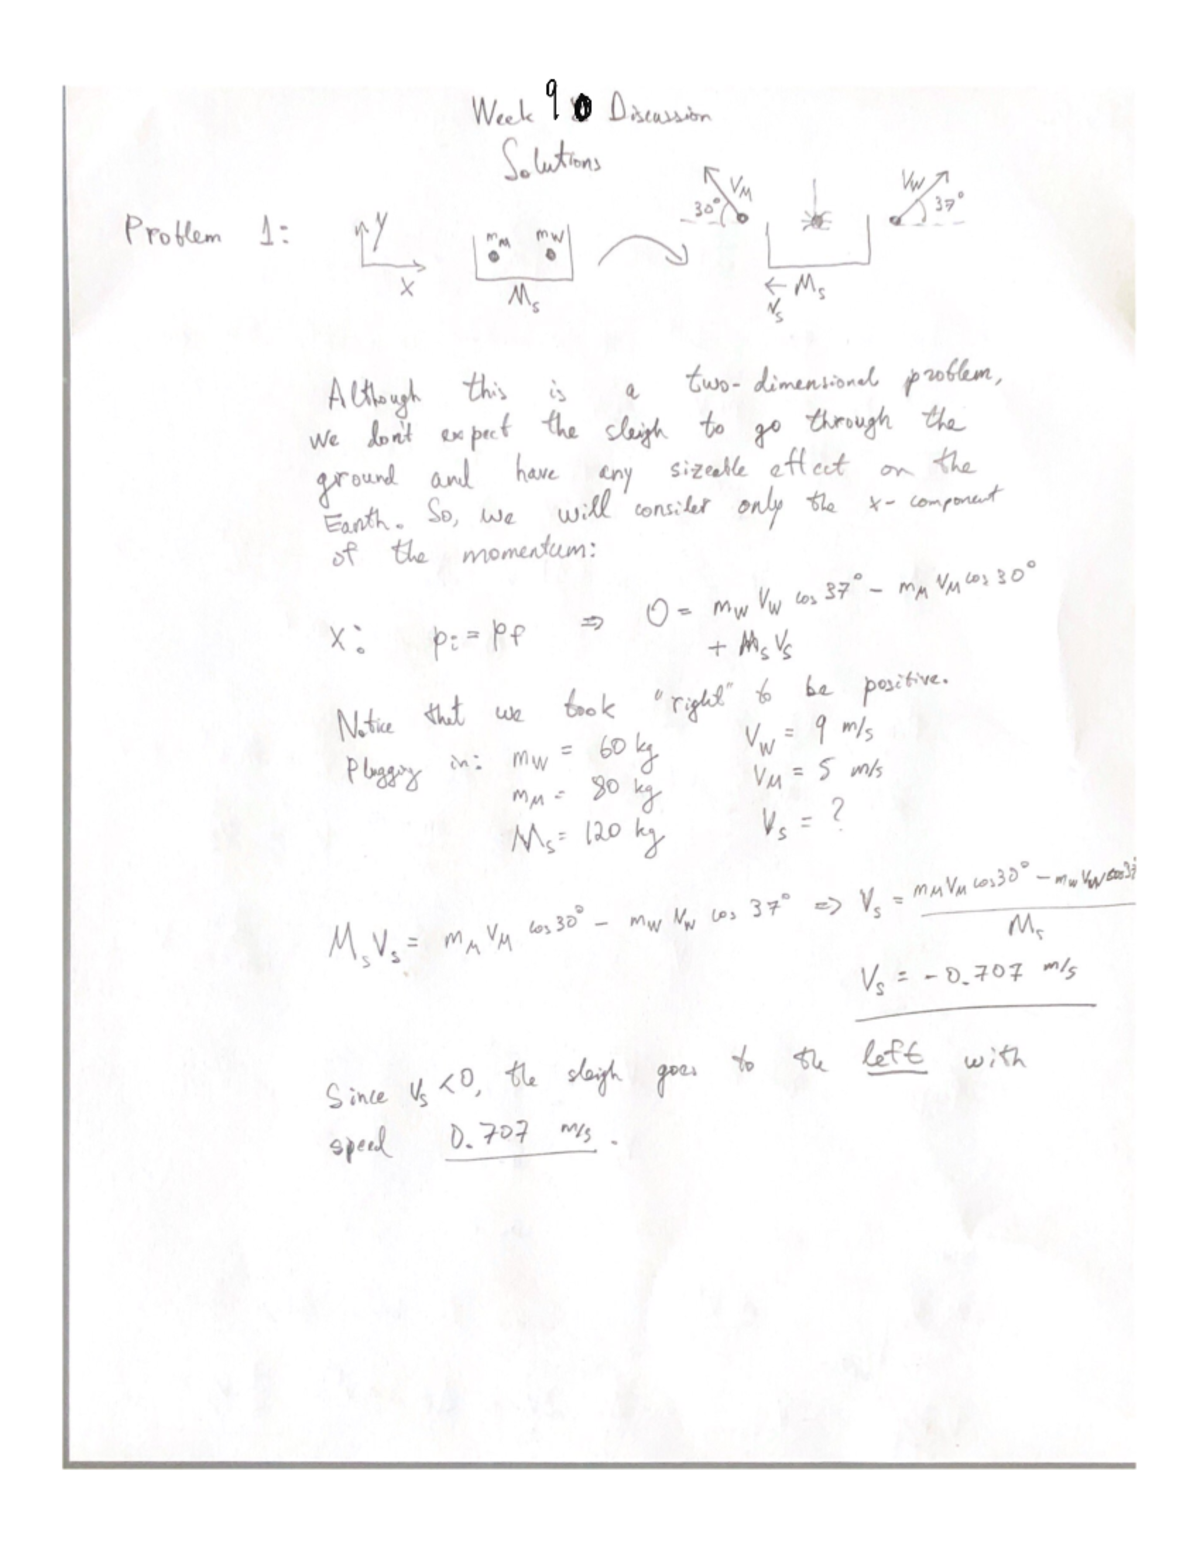 Week 9 Discussion
Solutions
Problem 1:
y
x
m_M m_W
M_s
30° V_M
V_W 37°
← M_s
V_s
Although this is a two-dimensional problem,
we don't expect the sleigh to go through the
ground and have any sizeable effect on the
Earth. So, we will consider only the x-component
of the momentum:
x: p_i = p_f ⇒ 0 = m_W V_W cos 37° - m_M V_M cos 30°
+ M_s V_s
Notice that we took "right" to be positive.
Plugging in: m_W = 60 kg V_W = 9 m/s
m_M = 80 kg V_M = 5 m/s
M_s = 120 kg V_s = ?
M_s V_s = m_M V_M cos 30° - m_W V_W cos 37° ⇒ V_s = m_M V_M cos 30° - m_W V_W cos 37
M_s
V_s = -0.707 m/s
Since V_s < 0, the sleigh goes to the left with
speed 0.707 m/s.